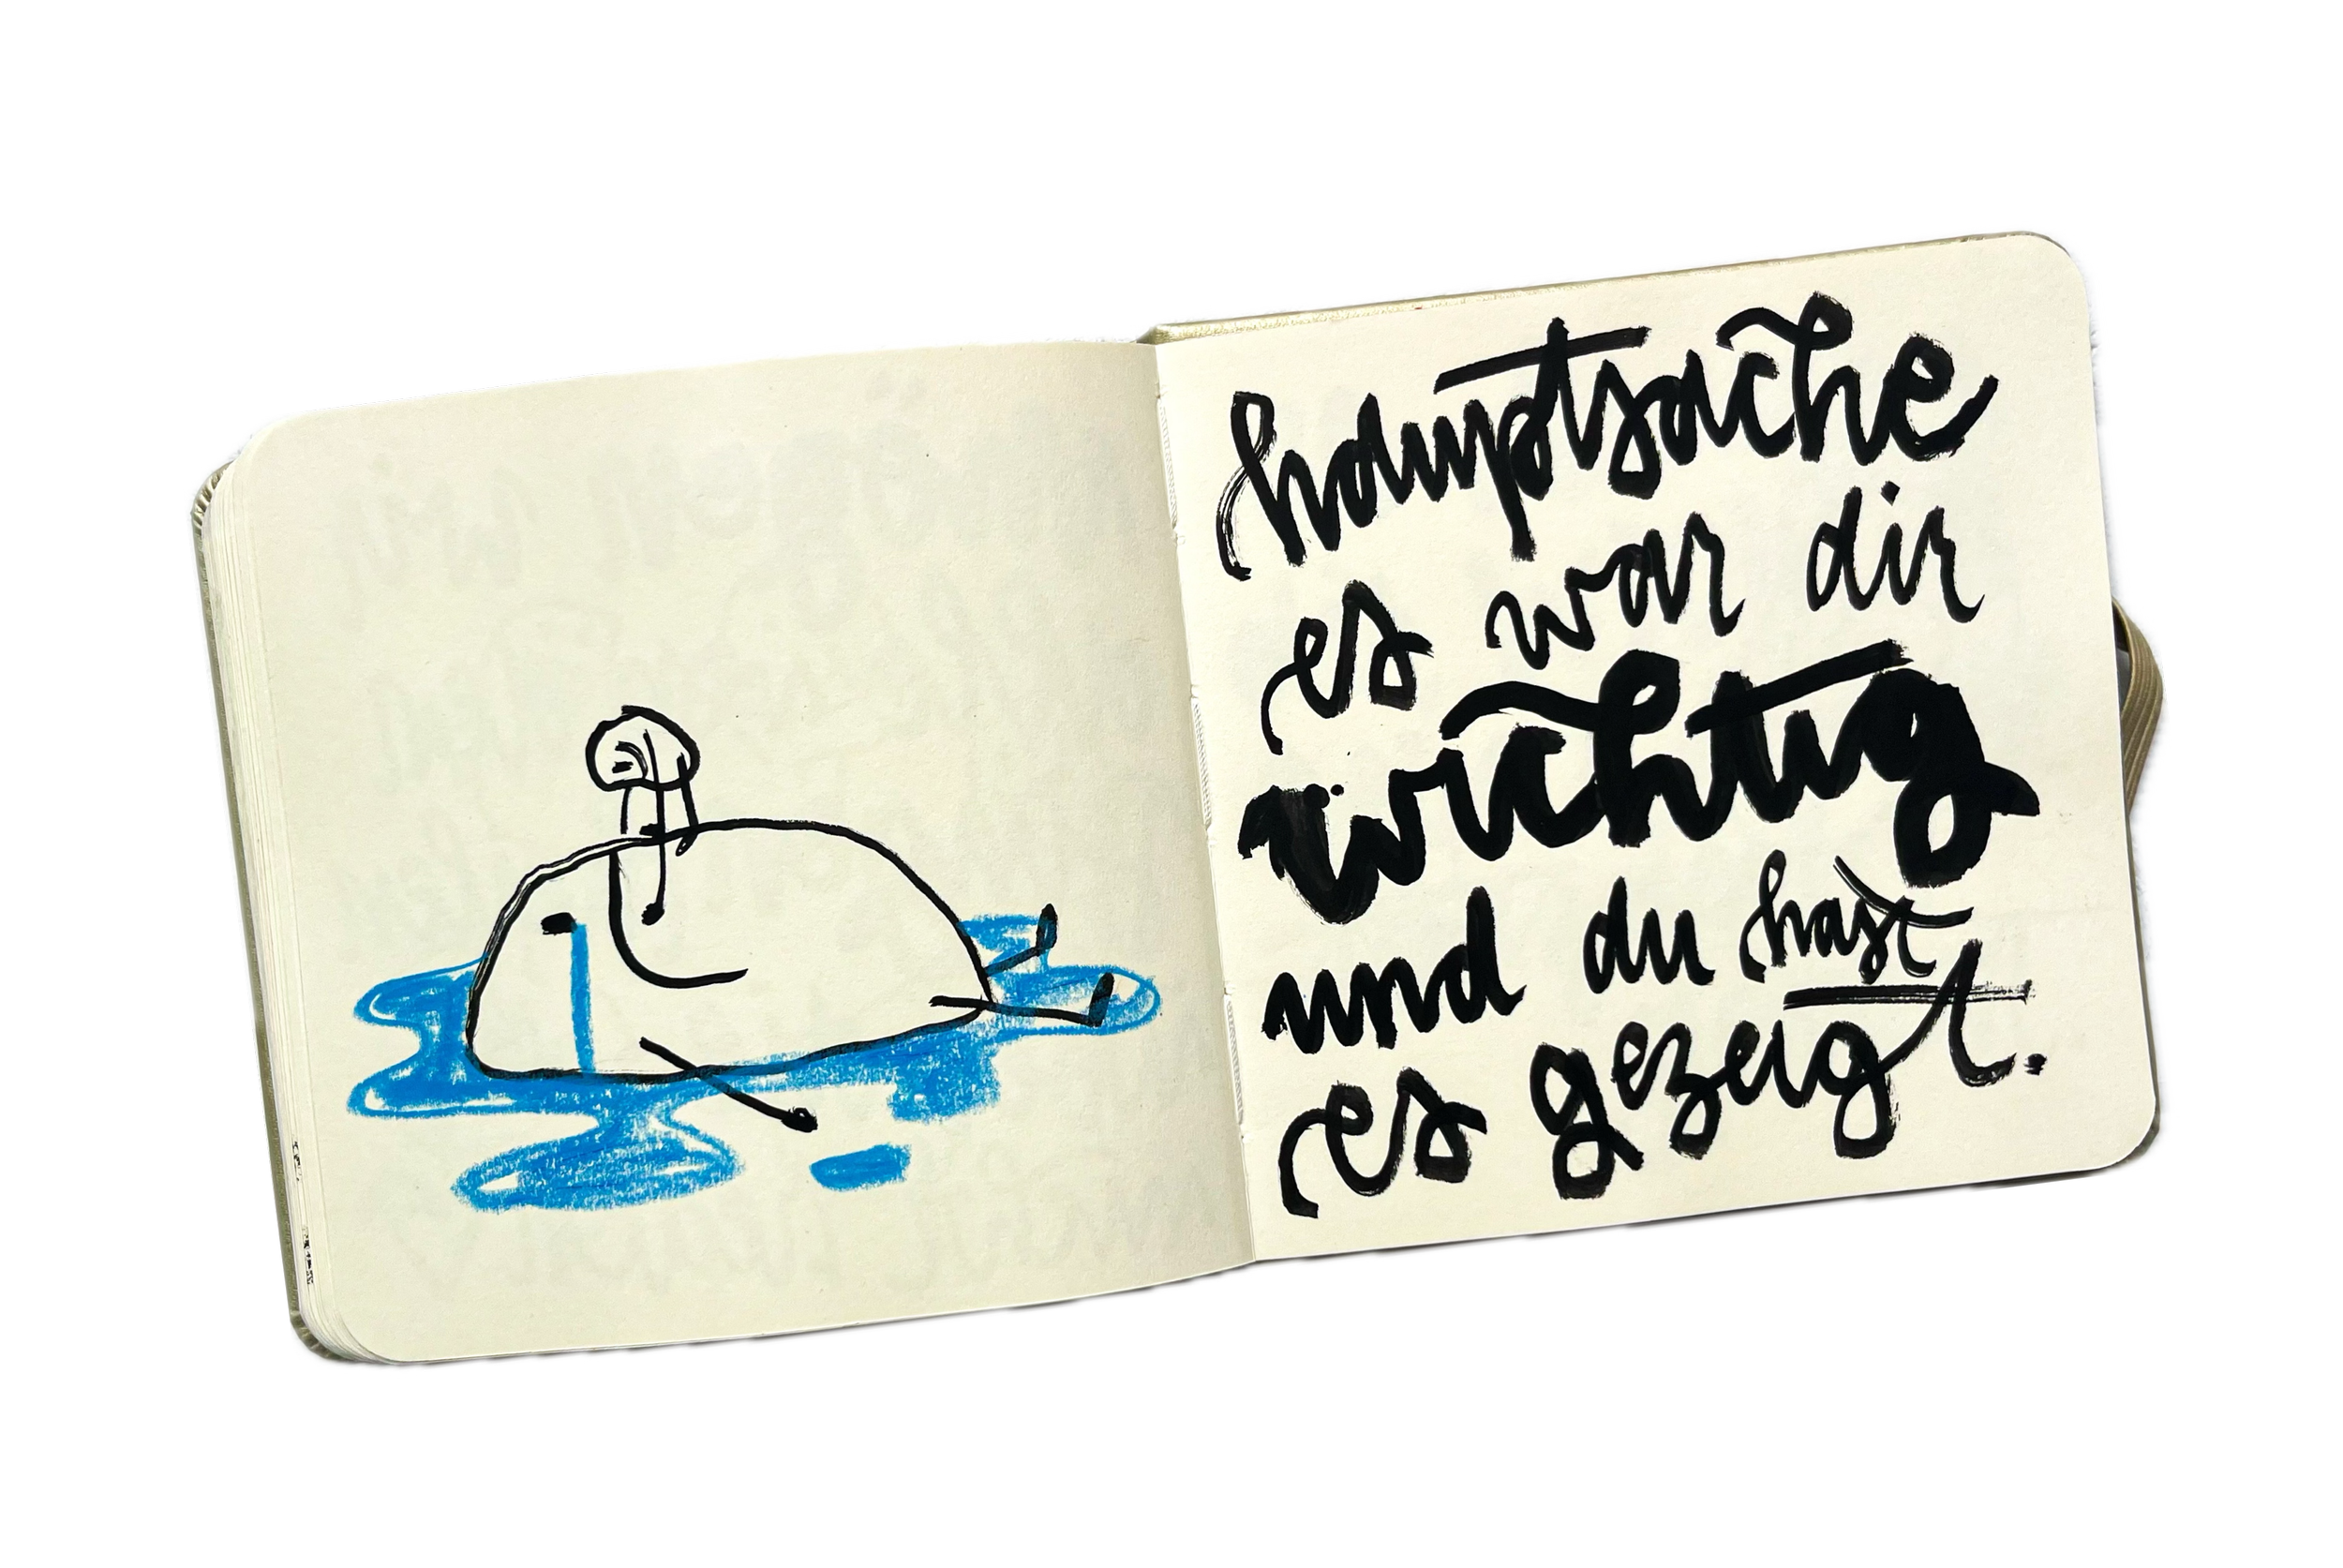 hauptsache
es war dir
wichtig
und du hast
es gezeigt.